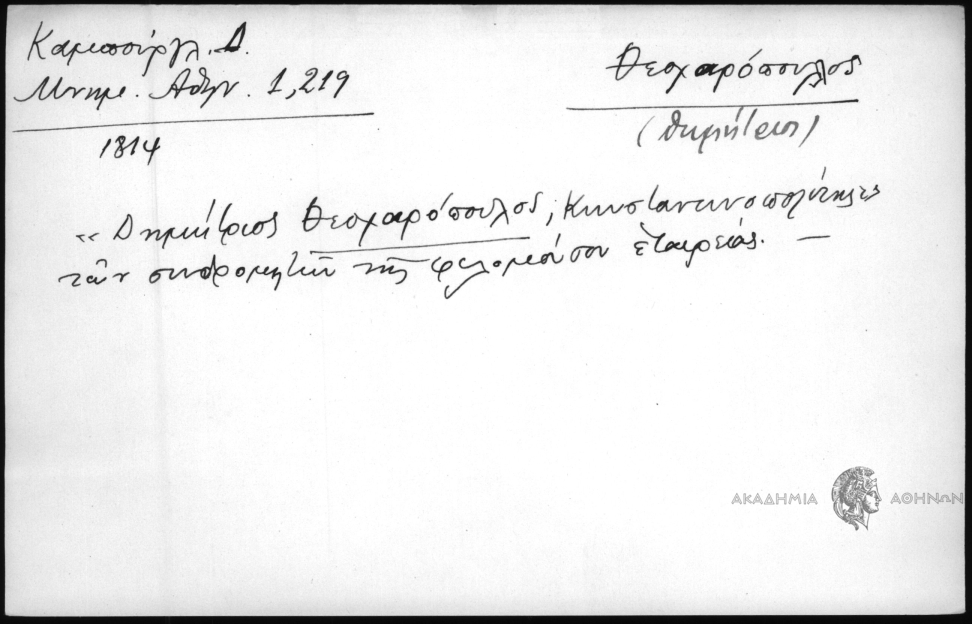 Καμπούργλ. Δ.
Μνημ. Αθην. 1,219
1814
Θεοχαρόπουλος
(Δημήτριος)
"Δημήτριος Θεοχαρόπουλος, Κωνσταντινοπολίτης
τῶν συνδρομητῶν τῆς φιλομούσου ἑταιρείας. —
ΑΚΑΔΗΜΙΑ ΑΘΗΝΩΝ